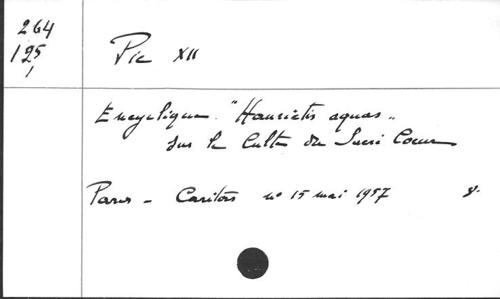 264
125
1
Pie XII
Encyclique "Haurietis aquas"
sur le Culte du Sacré Coeur
Paris - Caritas n° 15 mai 1957 8.